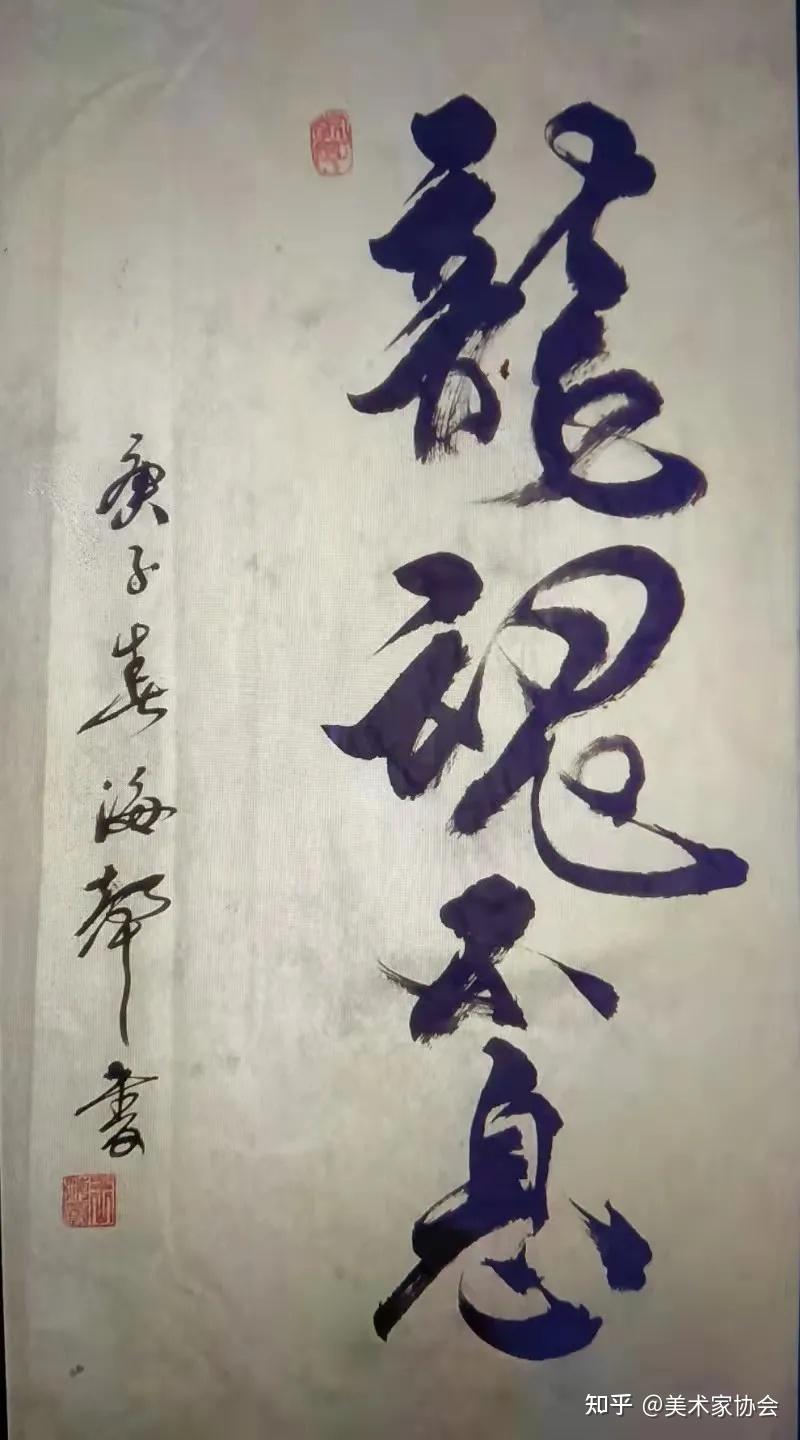 龍魂不息
庚子春海聲書
知乎 @美术家协会